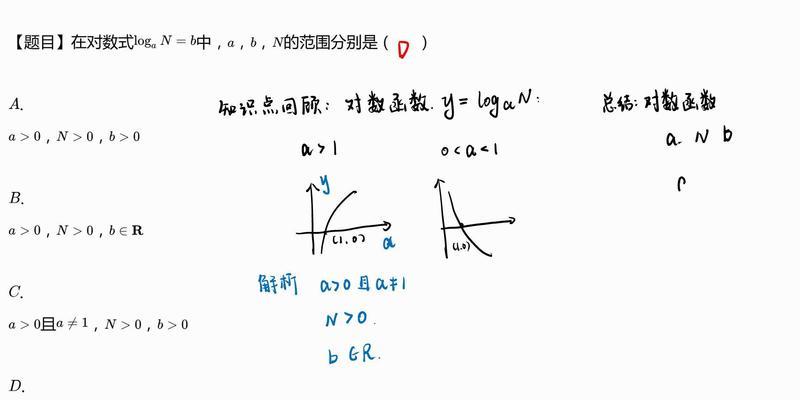 【题目】在对数式log_a N = b中，a，b，N的范围分别是（ D ）
A.
知识点回顾：对数函数. y = log_a N：
总结：对数函数
a > 0，N > 0，b > 0
a > 1
0 < a < 1
a. N b
y
B.
a > 0，N > 0，b ∈ R
(1,0)
(1,0)
解析 a>0 且 a≠1
C.
a > 0且a ≠ 1，N > 0，b > 0
N > 0.
b ∈ R.
D.